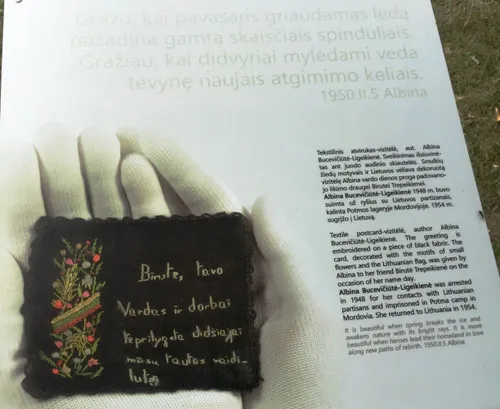 Gražu, kai pavasaris griaudamas ledą
pažadina gamtą skaisčiais spinduliais.
Gražiau, kai didvyriai mylėdami veda
tėvynę naujais atgimimo keliais.
1950.II.5 Albina
Tekstilinis atvirukas-vizitėlė, aut. Albina
Bucevičiūtė-Ligeikienė. Sveikinimas išsiuvinė-
tas ant juodo audinio skiautelės. Smulkių
žiedų motyvais ir Lietuvos vėliava dekoruotą
vizitėlę Albina vardo dienos proga padovano-
jo likimo draugei Birutei Trepeikienei.
Albina Bucevičiūtė-Ligeikienė 1948 m. buvo
suimta už ryšius su Lietuvos partizanais,
kalinta Potmos lageryje Mordovijoje. 1954 m.
sugrįžo į Lietuvą.
Textile postcard-vizitėlė, author Albina
Bucevičiūtė-Ligeikienė. The greeting is
embroidered on a piece of black fabric. The
card, decorated with the motifs of small
flowers and the Lithuanian flag, was given by
Albina to her friend Birutė Trepeikienė on the
occasion of her name day.
Albina Bucevičiūtė-Ligeikienė was arrested
in 1948 for her contacts with Lithuanian
partisans and imprisoned in Potma camp in
Mordovia. She returned to Lithuania in 1954.
It is beautiful when spring breaks the ice and
awakens nature with its bright rays. It is more
beautiful when heroes lead their homeland in love
along new paths of rebirth. 1950.II.5 Albina
Birute, tavo
Vardas ir darbai
teprilygsta didžiajai
mūsų tautos vaidi-
lutei